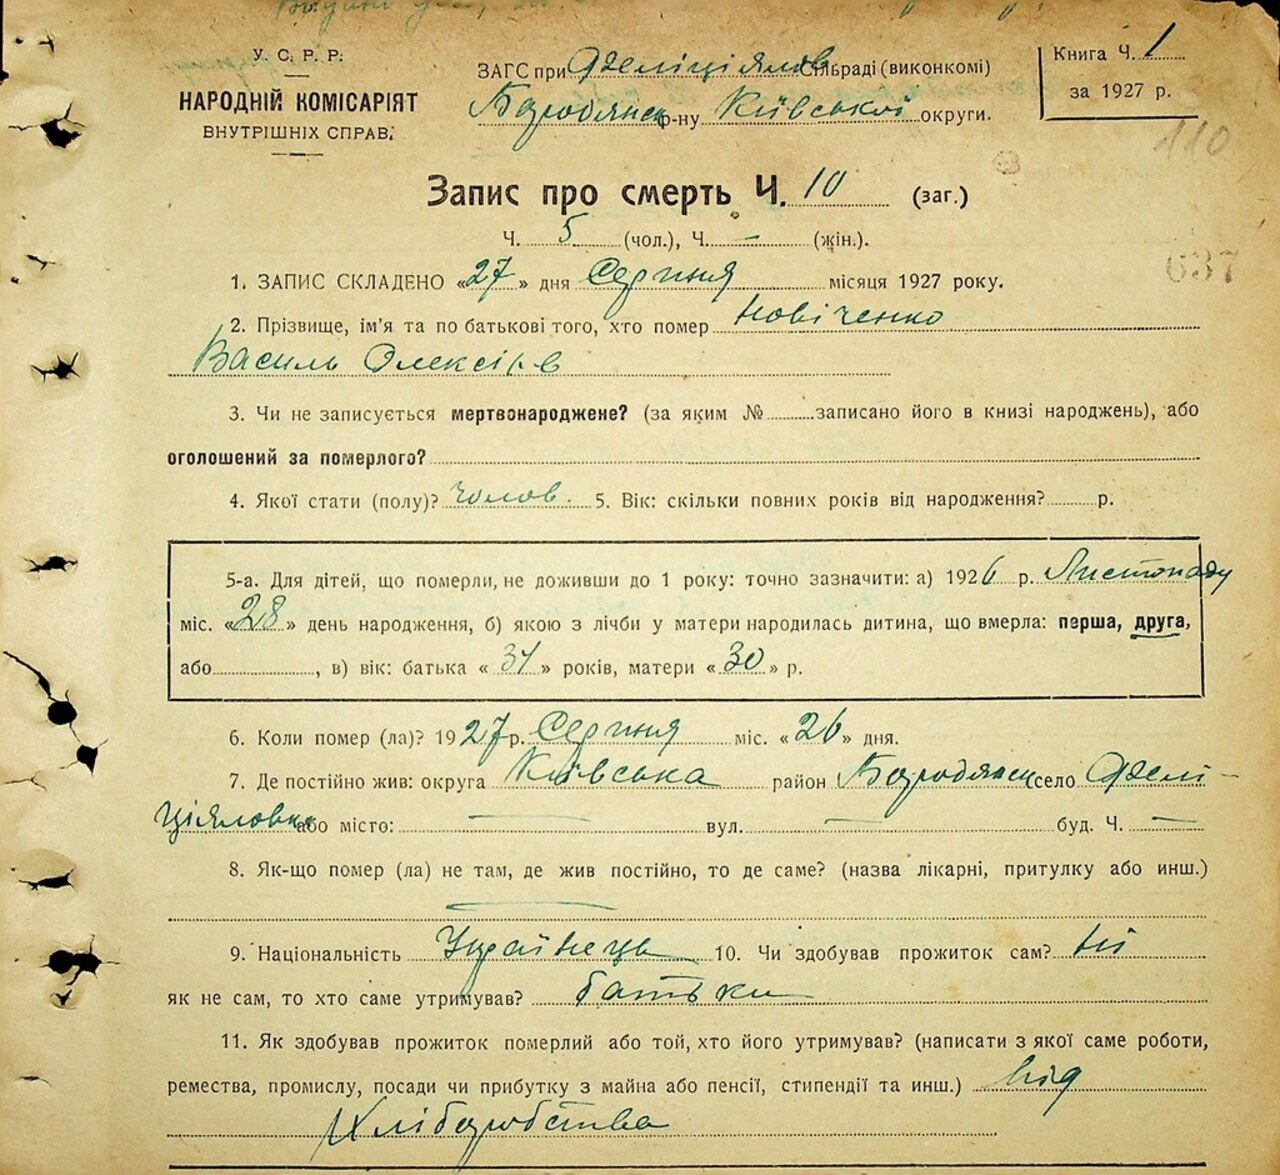 У. С. Р. Р.
НАРОДНІЙ КОМІСАРІЯТ
ВНУТРІШНІХ СПРАВ.
ЗАГС при Феліціялів Сільраді (виконкомі)
Бородянськ р-ну Київської округи.
Книга Ч. 1
за 1927 р.
110
Запис про смерть Ч. 10 (заг.)
Ч. 5 (чол.), Ч. — (жін.).
637
1. ЗАПИС СКЛАДЕНО «27» дня Серпня місяця 1927 року.
2. Прізвище, ім'я та по батькові того, хто помер Новіченко
Василь Олексіїв
3. Чи не записується мертвонароджене? (за яким № записано його в книзі народжень), або
оголошений за померлого?
4. Якої стати (полу)? чолов. 5. Вік: скільки повних років від народження? р.
5-а. Для дітей, що померли, не доживши до 1 року: точно зазначити: а) 1926 р. Листопаду
міс. «28» день народження, б) якою з лічби у матери народилась дитина, що вмерла: перша, друга,
або , в) вік: батька «31» років, матери «30» р.
6. Коли помер (ла)? 1927 р. Серпня міс. «26» дня.
7. Де постійно жив: округа Київська район Бородянськ село Фелі-
ціяловка або місто: — вул. — буд. Ч. —
8. Як-що помер (ла) не там, де жив постійно, то де саме? (назва лікарні, притулку або инш.)
—
9. Національність Українець 10. Чи здобував прожиток сам? Ні
як не сам, то хто саме утримував? батьки
11. Як здобував прожиток померлий або той, хто його утримував? (написати з якої саме роботи,
ремества, промислу, посади чи прибутку з майна або пенсії, стипендії та инш.) від
Хліборобства